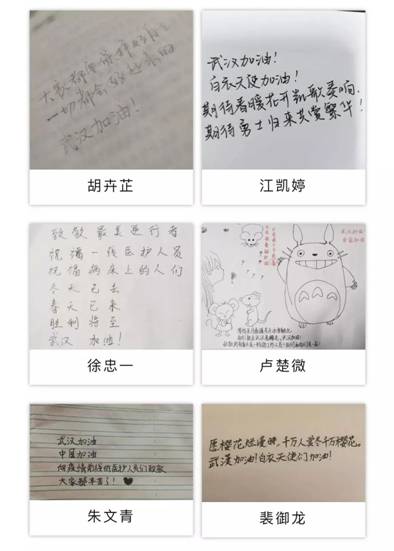 一切都会好起来的
武汉加油！
胡卉芷
武汉加油！
白衣天使加油！
期待春暖花开凯歌奏响，
期待勇士归来共赏繁华！
江凯婷
致敬 最美逆行者
祝福一线医护人员
祝福病床上的人们
冬天已去
春天已来
胜利将至
武汉 加油！
徐忠一
卢楚微
武汉加油
中国加油
向疫情前线的医护人员们致敬
大家都辛苦了！
朱文青
千万人赏千万樱花。
武汉加油！白衣天使们加油！
裴御龙